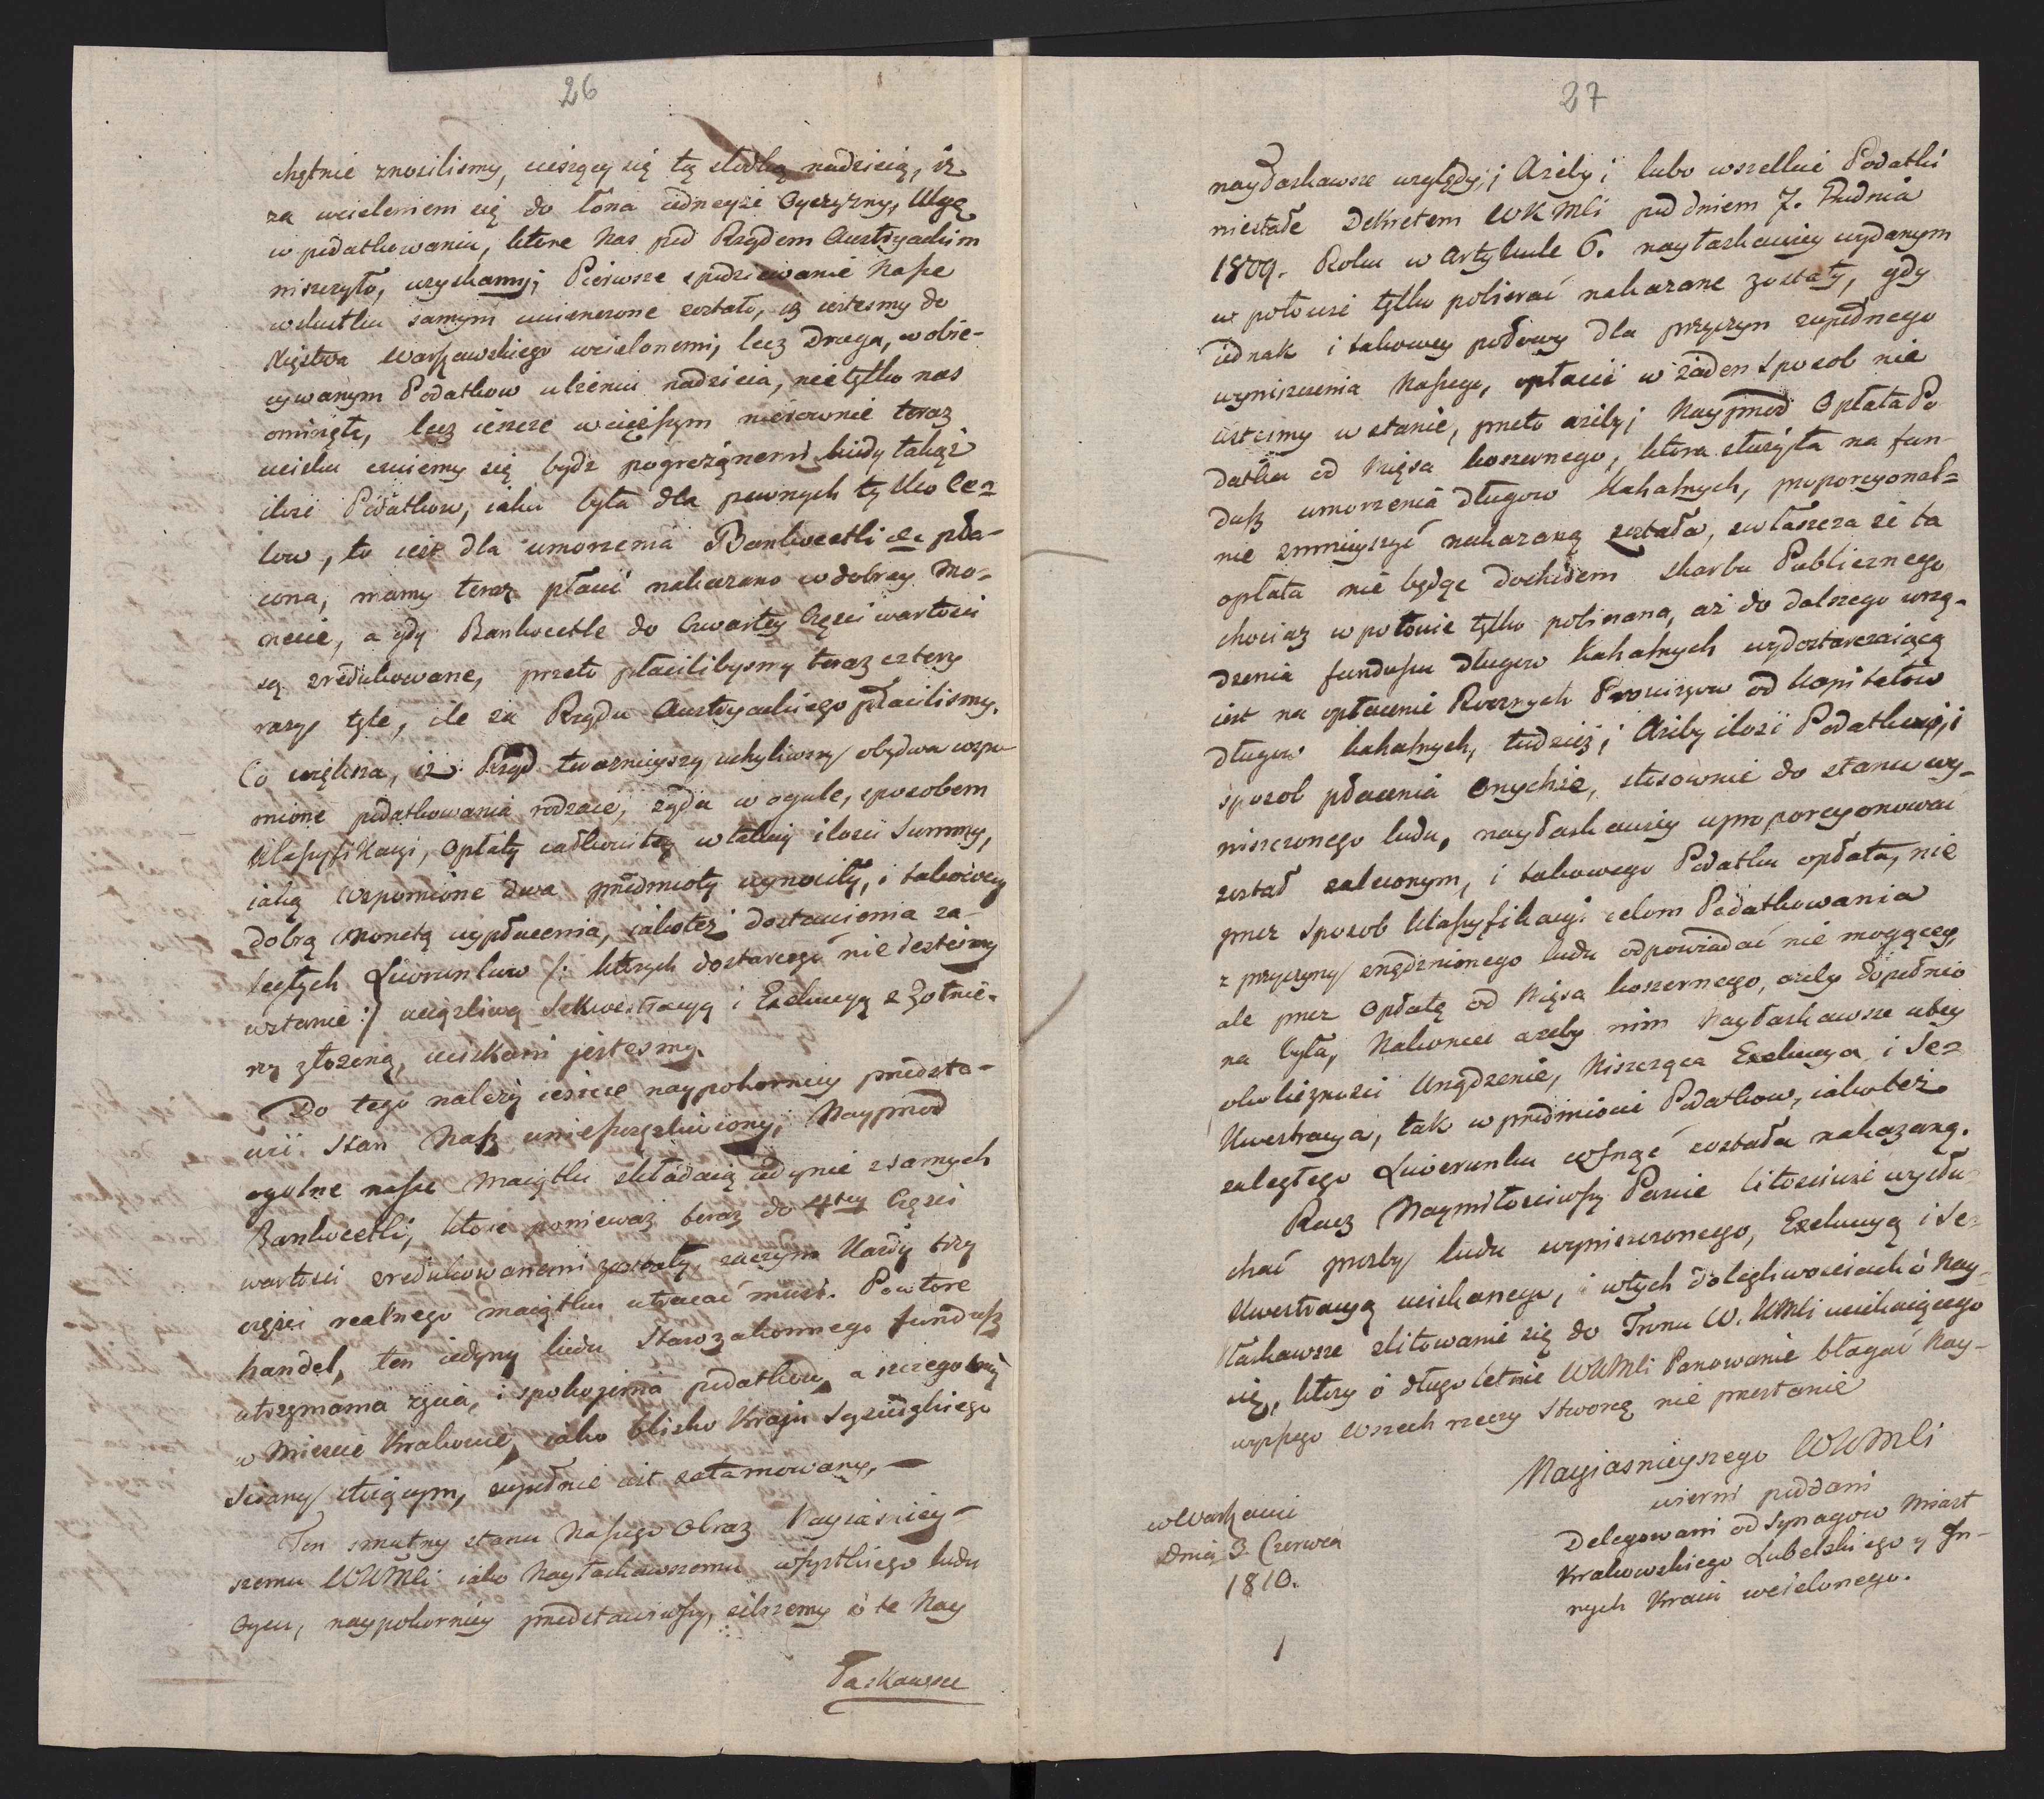 26
chętnie znosilismy, ciesząc się tą słodką nadzieią, iż
za wcieleniem się do łona iedneyże Oyczyzny, Ulgę
w podatkowaniu, które Nas pod Rządem Austryackim
niszczyło, uzyskamy; Pierwsze spodziewanie Nasze
w skutku samym uiszczone zostało, iż iestesmy do
Xięstwa Warszawskiego wcielonemi, lecz Druga, w obie-
cywanym Podatkow ulżeniu nadzieia, nie tylko nas
ominęła, lecz ieszcze w cięższym nierownie teraz
ucisku czuiemy się bydź pogrążonemi kiedy takąż
ilość Podatkow, iaka była dla pewnych tylko Ce=
low, to iest dla umorzenia Bankocetli _ pła-
cona, mamy teraz płacić nakazano w dobrey Mo-
necie, a gdy Bankocetle do Czwartey Części wartości
są zredukowane, przeto płacilibysmy teraz cztery
razy tyle, ile za Rządu Austryackiego płacilismy.
Co większa, iż Rząd tworznieyszy uchyliwszy obydwa wspo-
mnione podatkowania rodzaie, żąda w ogule, sposobem
Klasyfikacyi, Opłaty całkowitey w takiey ilości Summy,
iaką wspomnione dwa przedmioty wynosiły, i takowey
dobrą monetą wypłacenia, iakoteż dostawienia za-
ległych Liwerunkow /: ktorych dostarczyć nie iestesmy
w stanie :/ uciążliwą Sekwestracyą i Exekucyą z Żołnie-
rzy złożoną, uciskani jestesmy.
Do tego należy ieszcze naypokorniey przedsta-
wić Stan Nasz unieszczęśliwiony; Nayprzod
ogolne nasze Maiątku składaią iedynie z samych
Bankocetli, ktore ponieważ teraz do 4tey Części
wartości zredukowanemi zostały, zaczym Każdy trzy
części realnego maiątku utracać musi. Powtore
handel, ten iedyny ludu Starozakonnego fundusz
utrzymania życia, i spokojenia podatkow, a szczegolniey
w Mieście Krakowie, iako blisko Kraju Sąsiedzkiego
ściany stoiącym, zupełnie iest zatamowany. —
Ten smutny stanu Naszego Obraz Nayiasniey-
szemu WKMci iako Nayłaskawszemu wszystkiego ludu
Oycu, naypokorniey przedstawiwszy, żebrzemy o te Nay
Łaskawsze
27
nayłaskawsze względy; Ażeby; lubo wszelkie Podatki
niestałe Dekretem WKMci pod dniem 7. Grudnia
1809. Roku w Artykule 6. nayłaskawiey wydanym
w połowie tylko pobierać nakazane zostały, gdy
iednak i takowey połowy dla przyczyn zupełnego
wyniszczenia Naszego, opłacić w żaden sposob nie
iestesmy w stanie, przeto ażeby; Nayprzod Opłata Po-
datku od Mięsa koszernego, ktora służyła na fun-
dusz umorzenia Długow Kahalnych, proporcyonal=
nie zmnieyszyć nakazaną została, zwłaszcza że ta
opłata nie będąc dochodem Skarbu Publicznego
chociaż w połowie tylko pobierana, aż do dalszego urzą-
dzenia funduszu Długow Kahalnych wydostarczaiącą
iest na opłacenie Rocznych Prowizyow od Kapitałow
długow kahalnych, tudzież; Ażeby ilość Podatkow; i
sposob płacenia Onychże, stosownie do stanu wy-
niszczonego ludu, nayłaskawiey uproporcyonować
został zaleconym, i takowego Podatku opłata, nie
przez Sposob Klasyfikacyi celom Podatkowania
z przyczyny znędznionego ludu odpowiadać nie mogącey,
ale przez Opłatę od Mięsa koszernego, ażeby dopełnio-
na była, Nakoniec ażeby nim Nayłaskawsze w tey
okoliczności Urządzenie, Niszcząca Exekucya i Se=
kwestracya, tak w przedmiocie Podatkow, iakoteż
zaległego Liwerunku cofnąć została nakazaną.
Racz Naymiłościwszy Panie litościwie wysłu-
chać prozby ludu wyniszczonego, Exekucyą i Se-
kwestracyą uciskanego, i w tych dolegliwościach o Nay-
łaskawsze zlitowanie się do Tronu W. KMci uciekaiącego
się, ktory o długoletnie WKMci Panowanie błagać Nay-
wyższego Wszech rzeczy Stworcę nie przestanie
Nayiasnieyszego WKMci
wierni poddani
Delegowani od Synagow Miast
Krakowskiego Lubelskiego y In-
nych Kraiu wcielonego.
w Warszawie
Dnia 3. Czerwca
1810.